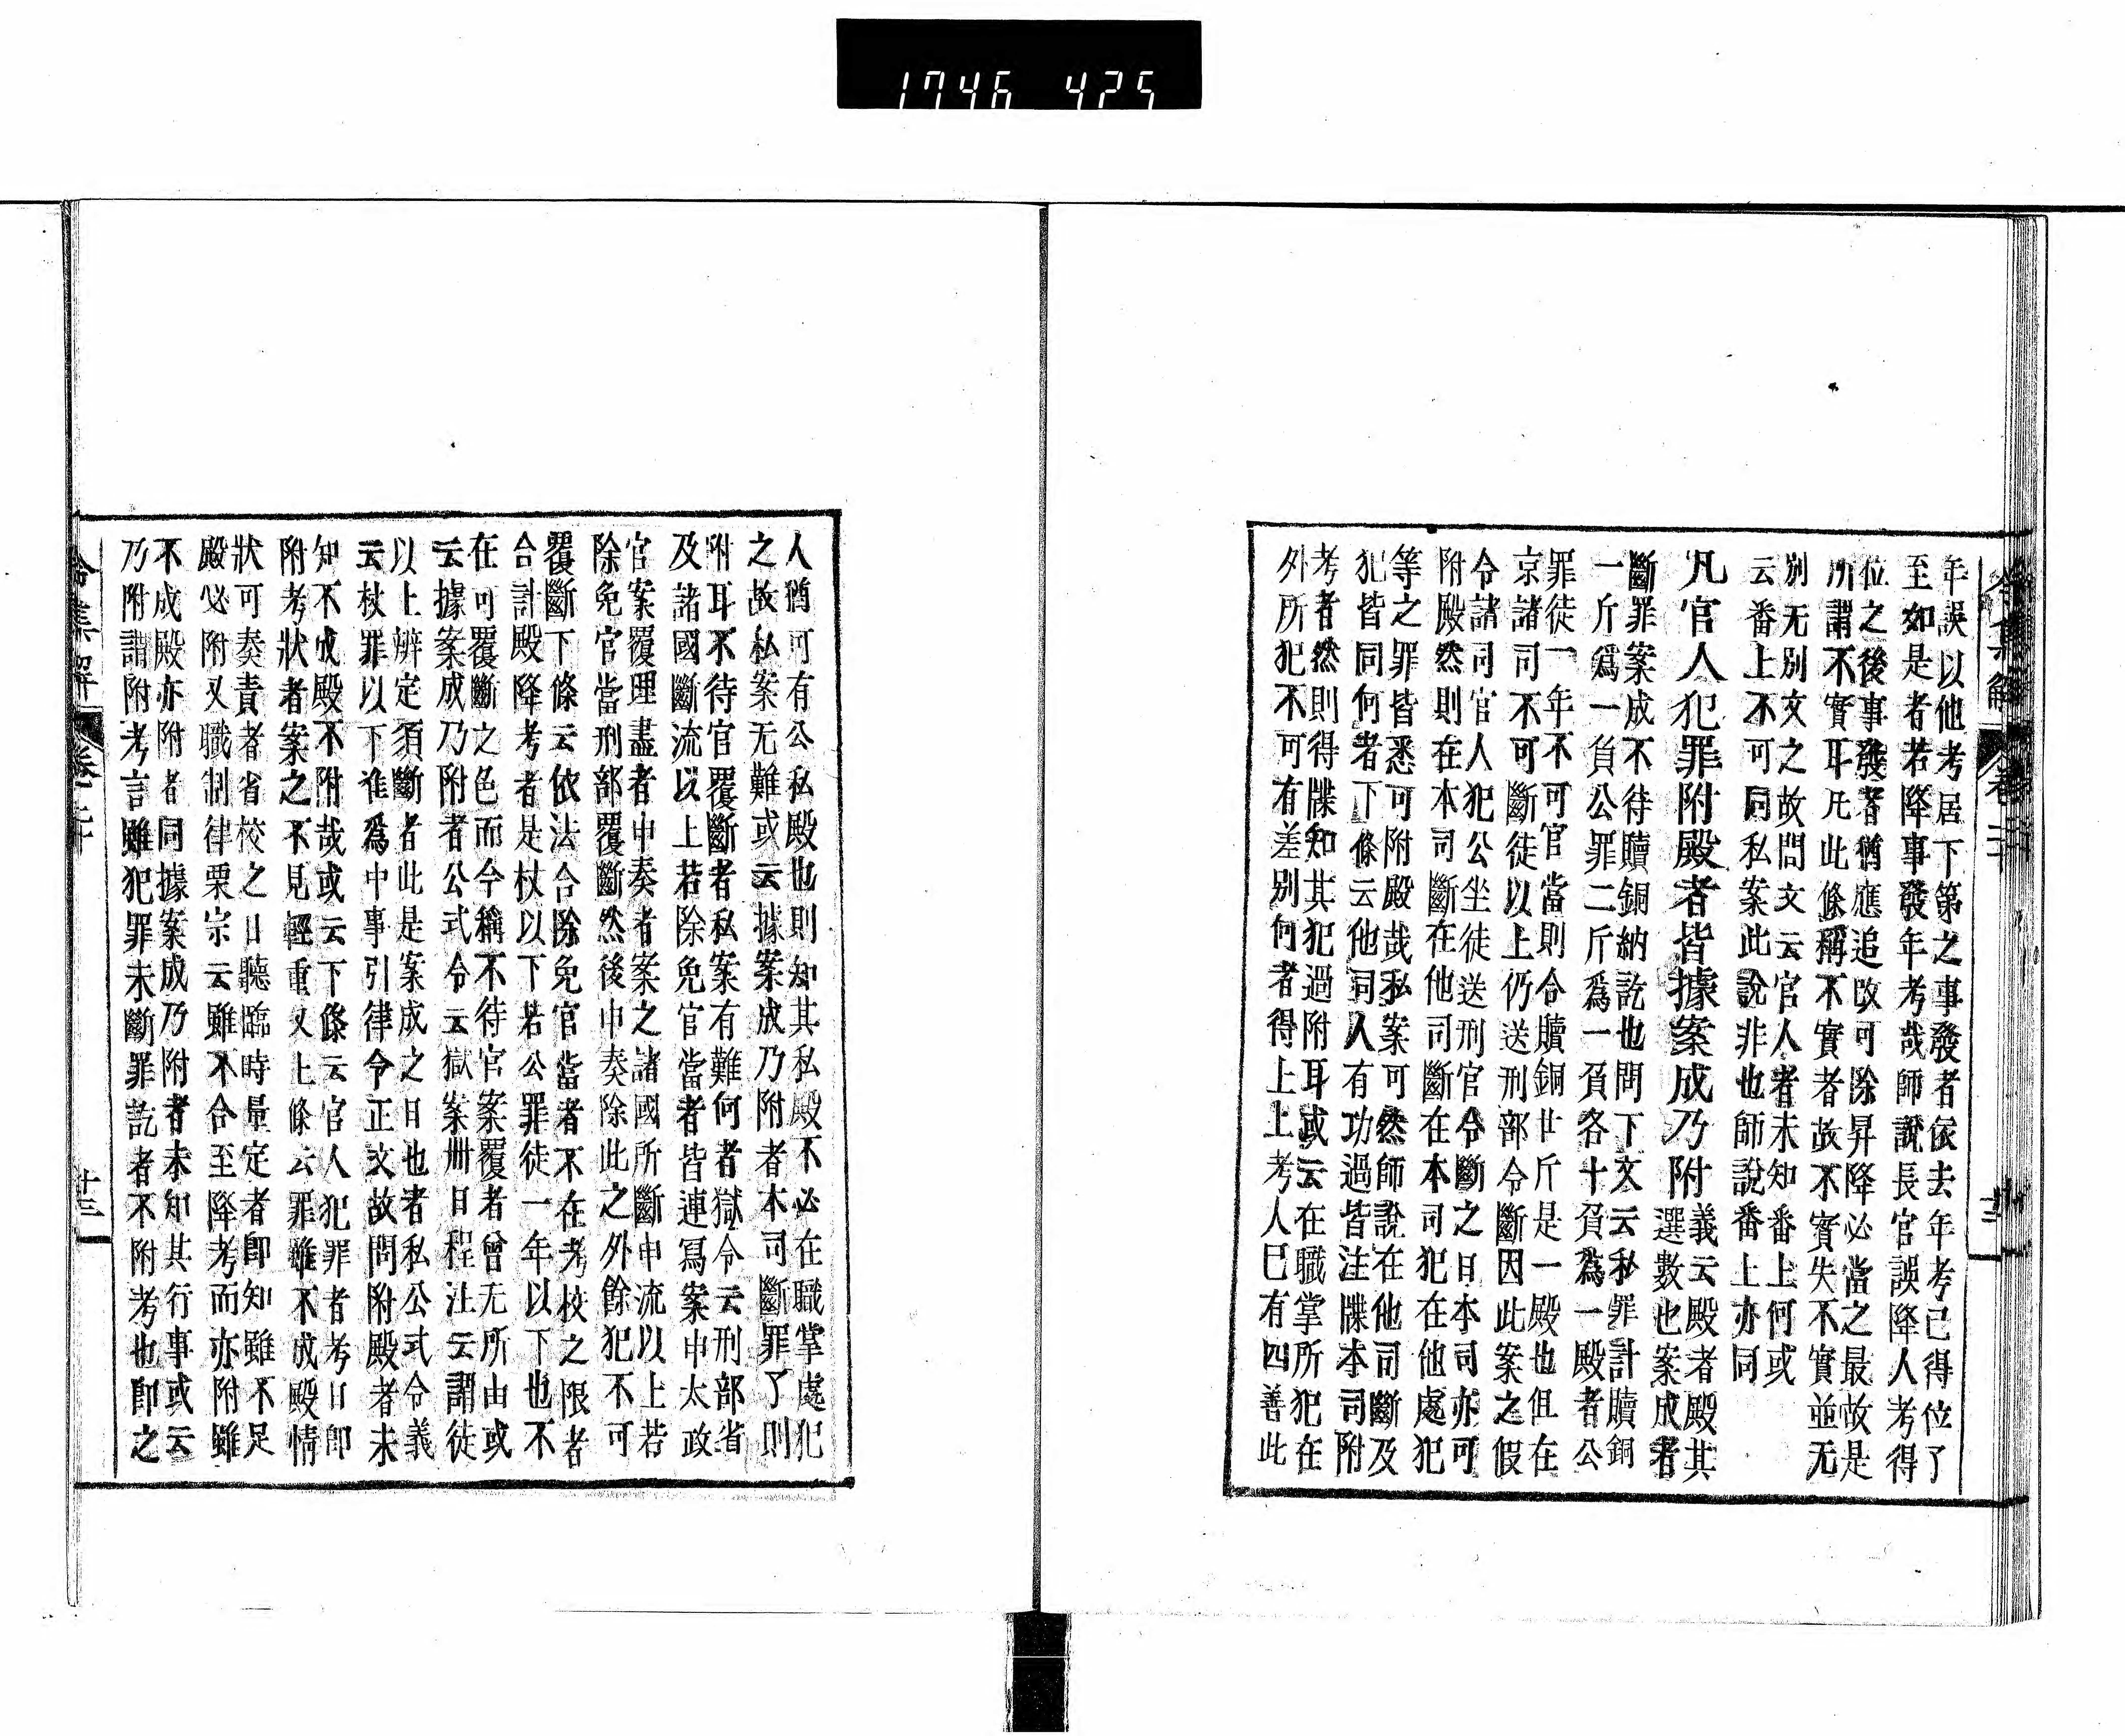 1746 425
年誤以他考居下第之事發者依去年考已得位了
至如是者若降事發年考哉師説長官誤降人考得
位之後事發者猶應追改可除昇降必當之最故是
所謂不實耳凡此條稱不實者故不實失不實並无
別无別文之故問文云官人者未知番上何或
云番上不可同私案此説非也師説番上亦同
凡官人犯罪附殿者皆據案成乃附
義云殿者殿其
選數也案成者
斷罪案成不待贖銅納訖也問下文云私罪計贖銅
一斤爲一負公罪二斤爲一負各十負爲一殿者公
罪徒一年不可官當則合贖銅廿斤是一殿也但在
京諸司不可斷徒以上仍送刑部令斷因此案之假
令諸司官人犯公坐徒送刑官令斷之日本司亦可
附殿然則在本司斷在他司斷在本司犯在他處犯
等之罪皆悉可附殿哉私案可然師説在他司斷及
犯皆同何者下條云他司人有功過皆注牒本司附
考者然則得牒知其犯過附耳或云在職掌所犯在
外所犯不可有差別何者得上上考人已有四善此
令集解 卷二十 十三
人猶可有公私殿也則知其私殿不必在職掌處犯
之故私案无難或云據案成乃附者本司斷罪了則
附耳不待官覆斷者私案有難何者獄令云刑部省
及諸國斷流以上若除免官當者皆連寫案申太政
官案覆理盡者申奏者案之諸國所斷申流以上若
除免官當刑部覆斷然後申奏除此之外餘犯不可
覆斷下條云依法合除免官當者不在考校之限者
合計殿降考者是杖以下若公罪徒一年以下也不
在可覆斷之色而今稱不待官案覆者曾无所由或
云據案成乃附者公式令云獄案卌日程注云謂徒
以上辨定須斷者此是案成之日也者私公式令義
云杖罪以下准爲中事引律令正文故問附殿者未
知不成殿不附哉或云下條云官人犯罪者考日即
附考狀者案之不見輕重又上條云罪雖不成殿情
狀可奏責者省校之日聽臨時量定者即知雖不足
殿必附又職制律栗宗云雖不合至降考而亦附雖
不成殿亦附者同據案成乃附者未知其行事或云
乃附謂附考言雖犯罪未斷罪訖者不附考也即之
令集解 卷二十 十三